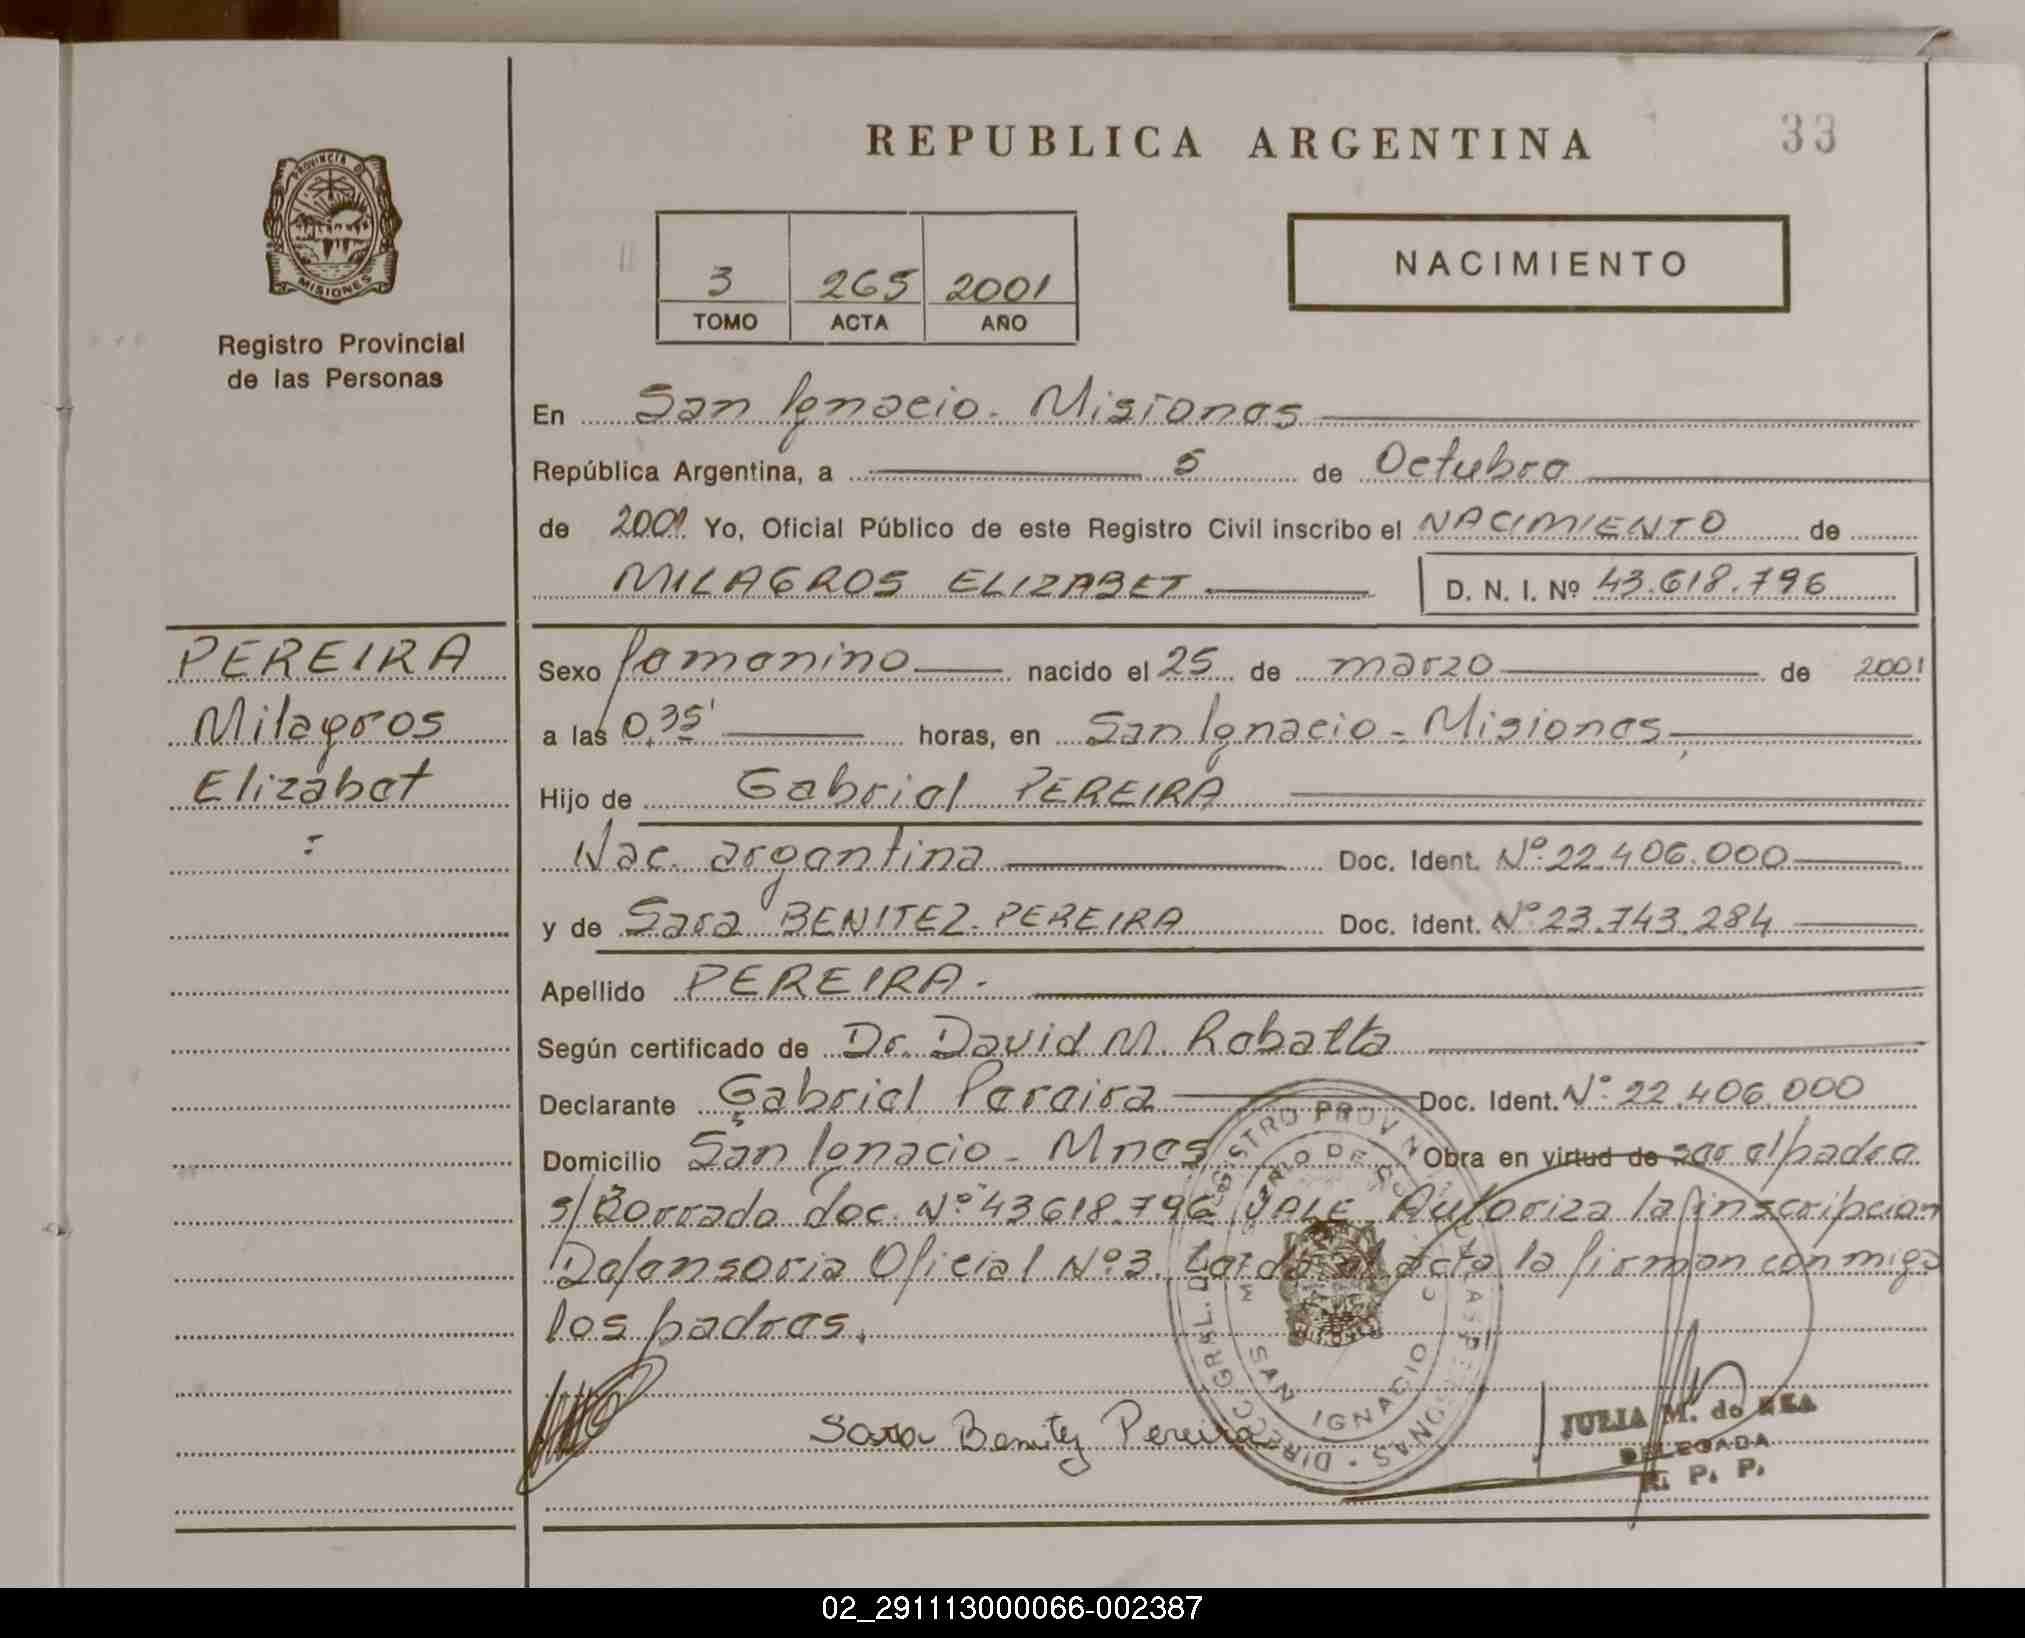 REPUBLICA ARGENTINA
33
PROVINCIA DE
MISIONES
Registro Provincial
de las Personas
3 265 2001
TOMO ACTA AÑO
NACIMIENTO
En San Ignacio - Misiones
República Argentina, a 5 de Octubre
de 2001 Yo, Oficial Público de este Registro Civil inscribo el NACIMIENTO de
MILAGROS ELIZABET D. N. I. Nº 43.618.796
PEREIRA
Milagros
Elizabet
Sexo femenino nacido el 25 de marzo de 2001
a las 0,35' horas, en San Ignacio - Misiones
Hijo de Gabriel PEREIRA
Nac. argentina Doc. Ident. Nº 22.406.000
y de Sara BENITEZ PEREIRA Doc. Ident. Nº 23.743.284
Apellido PEREIRA.
Según certificado de Dr. David M. Rabatta
Declarante Gabriel Pereira Doc. Ident. Nº 22.406.000
Domicilio San Ignacio - Mnes Obra en virtud de ser el padre
s/Borrado doc. Nº 43618.796 VALE Autoriza la inscripcion
Defensoria Oficial Nº 3. Leida el acta la firman conmigo
los padres.
Sara Benitez Pereira
SAN IGNACIO
JULIA M. de REA
DELEGADA
R. P. P.
02_291113000066-002387